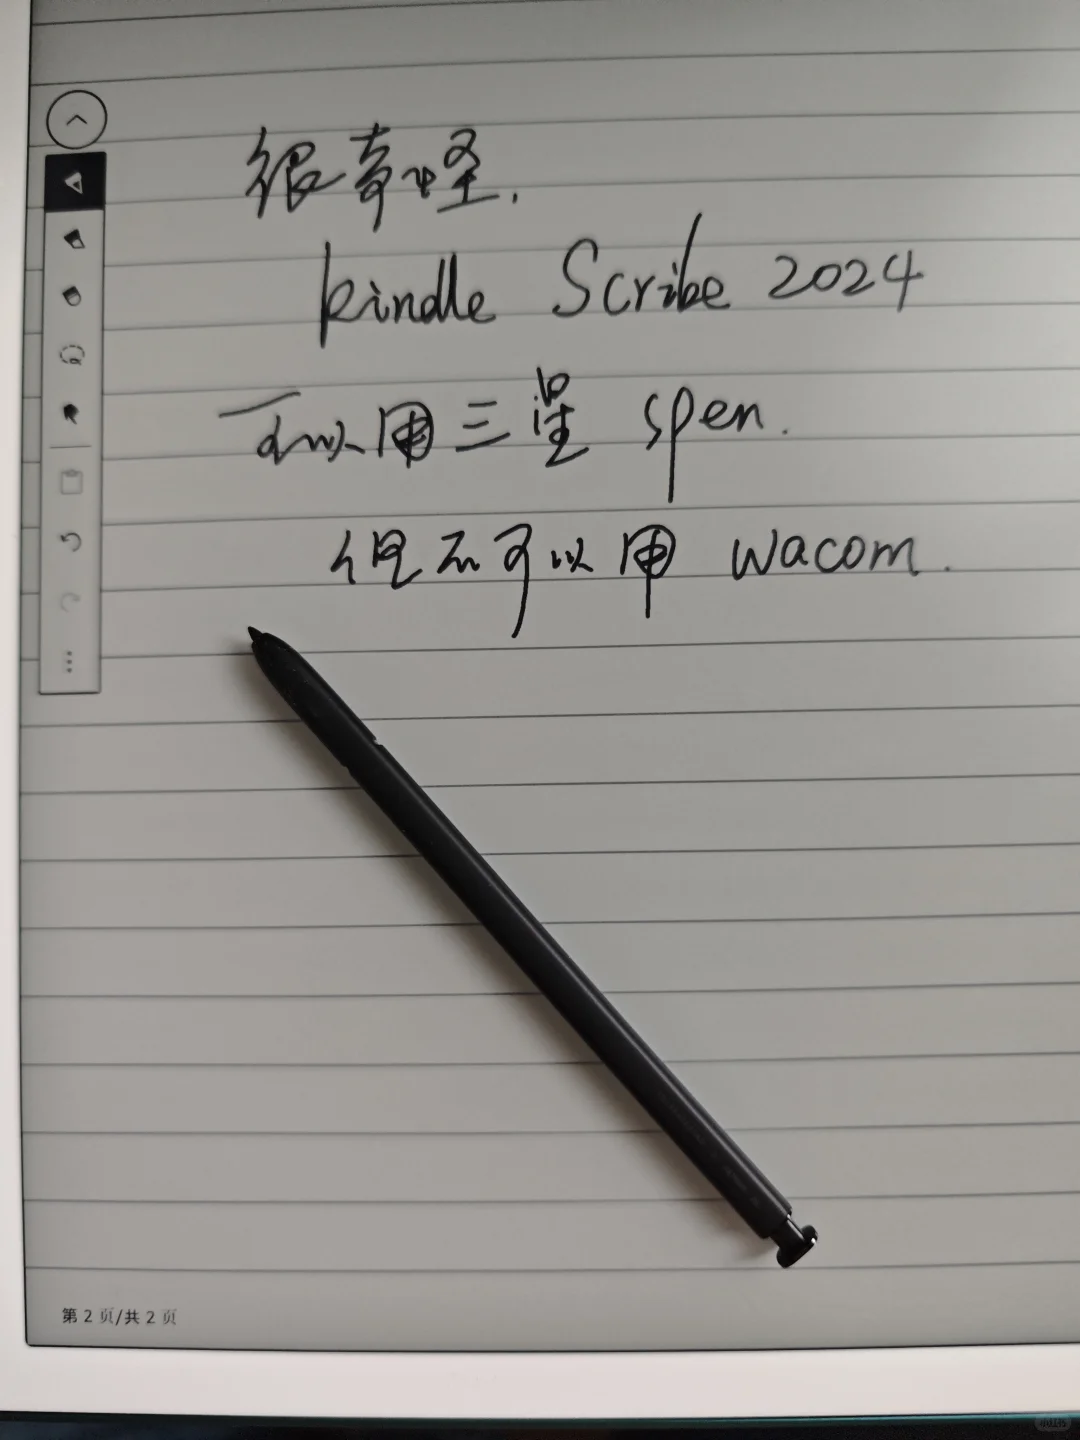 很奇怪.
kindle Scribe 2024
可以用三星 spen.
但不可以用 wacom.
第 2 页/共 2 页
小红书